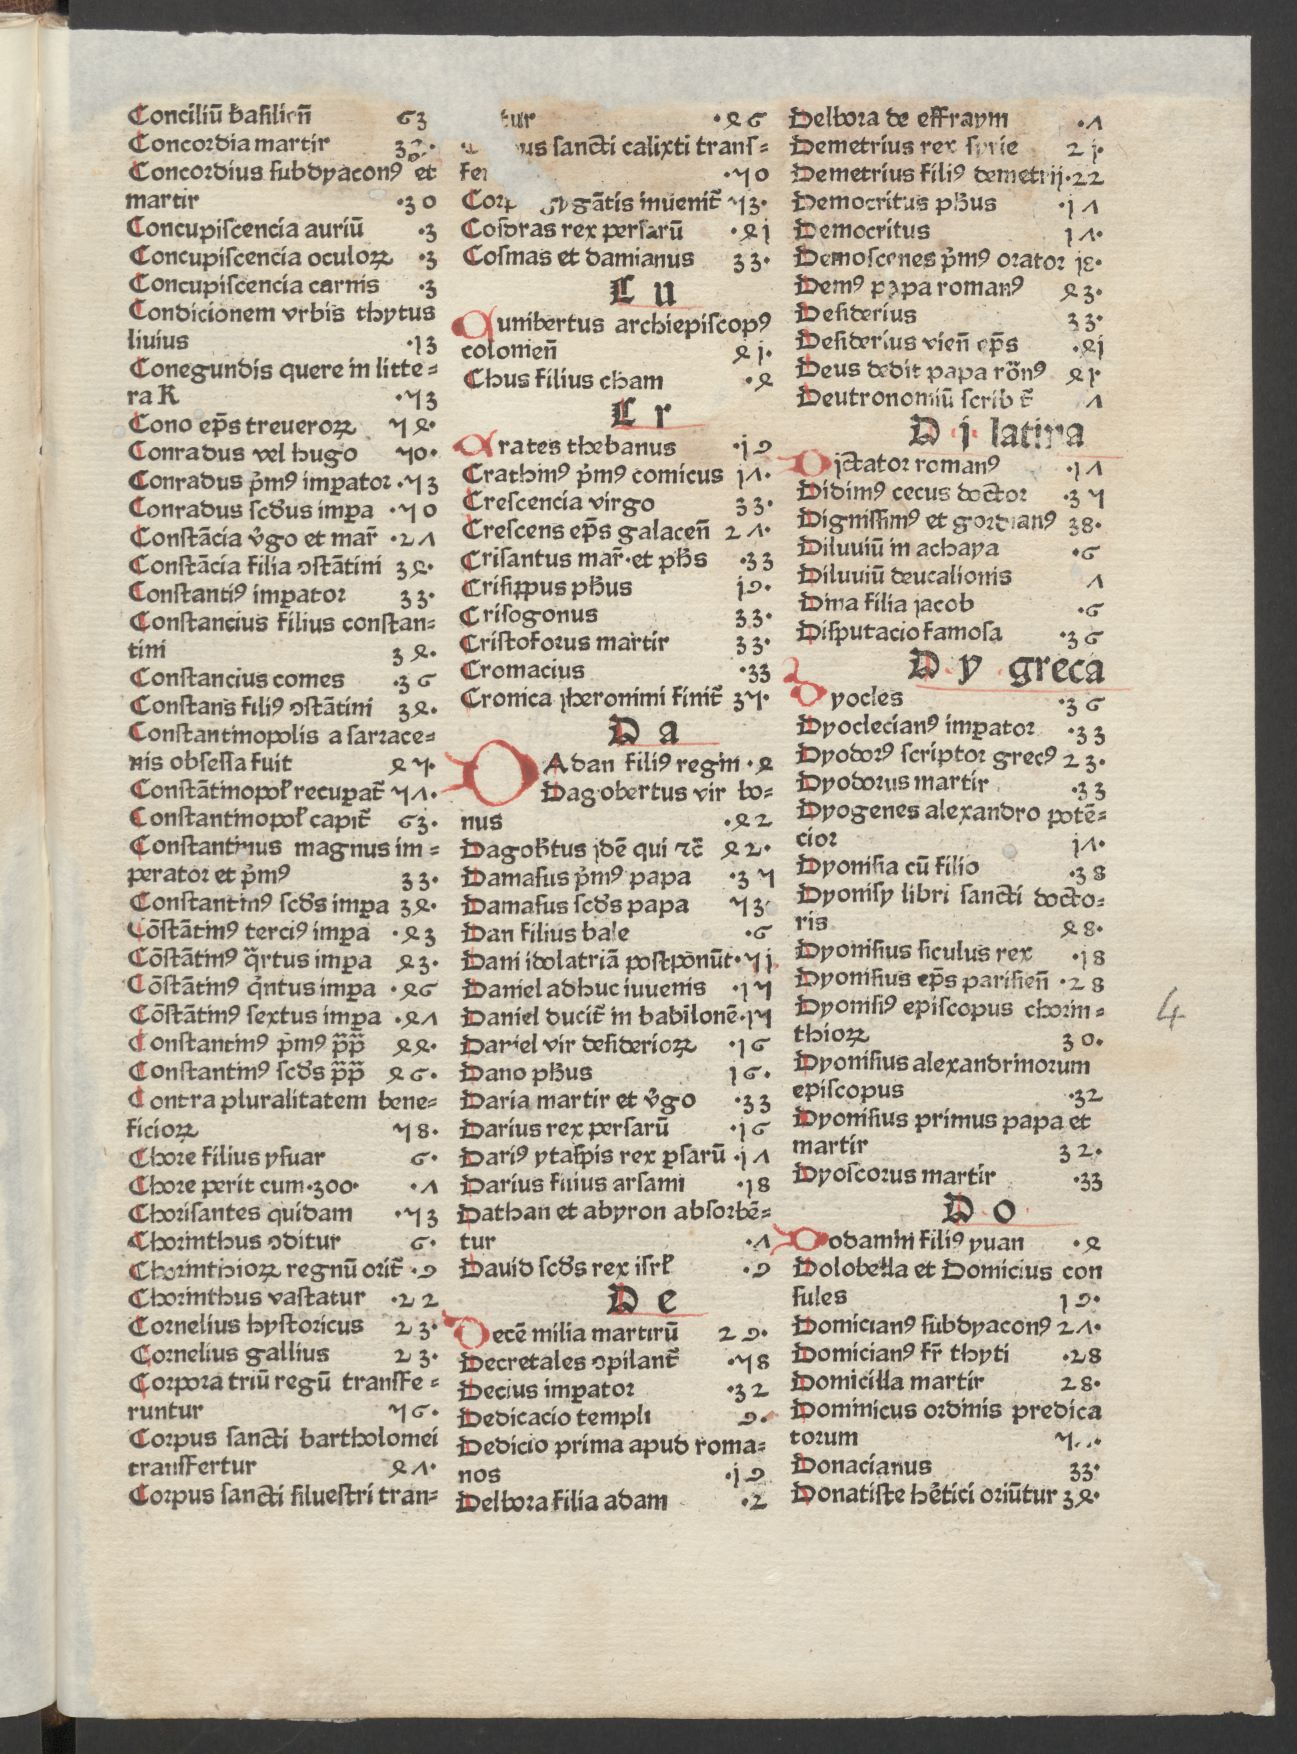 Conciliū baſilien̄ 63
Concordia martir
Concordius ſubdyaconꝰ et
martir ·30
Concupiſcencia auriū ·3
Concupiſcencia oculoꝝ ·3
Concupiſcencia carnis ·3
Condicionem vrbis thytus
liuius ·13
Conegundis quere in litte⸗
ra K ·53
Cono ep̄s treueroꝝ 54·
Conradus vel hugo 50·
Conradus p̄mꝰ imꝑator ·53
Conradus ſcd̄us imꝑa ·50
Conſtācia v̄go et mar̄ ·27
Conſtācia filia ↄſtātini 34·
Conſtantiꝰ imꝑator 33·
Conſtancius filius conſtan⸗
tini 34·
Conſtancius comes ·36
Conſtans filiꝰ ↄſtātini 34·
Conſtantinopolis a ſarrace⸗
nis obſeſſa fuit 45·
Conſtātinopol̄ recuꝑat᷒ 57·
Conſtantinopol̄ capit᷒ 63·
Conſtantinus magnus im⸗
perator et p̄mꝰ 33·
Conſtantinꝰ ſcd̄s imꝑa 34·
Cōſtātinꝰ terciꝰ imꝑa ·43
Cōſtātinꝰ q̄rtus imꝑa 43·
Cōſtātinꝰ q̄ntus imꝑa ·46
Cōſtātinꝰ ſextus imꝑa ·47
Conſtantinꝰ p̄mꝰ p̄p̄ 44·
Conſtantinꝰ ſcd̄s p̄p̄ 46·
Contra pluralitatem bene⸗
ficioꝝ 58·
Chore filius yſuar 6·
Chore perit cum·300· ·7
Choriſantes quidam ·53
Chorinthus ↄditur 6·
Chorinthioꝝ regnū orit᷒ ·9
Chorinthus vaſtatur ·22
Cornelius hyſtoricus 23·
Cornelius gallius 23·
Corpora triū regū tranſfe⸗
runtur 56·
Corpus ſancti bartholomei
tranſfertur 47·
Corpus ſancti ſilueſtri tran⸗
tur ·46
ſancti calixti tranſ⸗
·50
gygātis inuenit᷒ 53·
Coſdras rex perſarū ·41
Coſmas et damianus 33·
C u
Cunibertus archiepiſcopꝰ
colonien̄ 41·
Chus filius cham ·4
C r
Crates thebanus ·19
Crathinꝰ p̄mꝰ comicus 17·
Creſcencia virgo 33·
Creſcens ep̄s galacen̄ 27·
Criſantus mar̄·et ph̄s ·33
Criſippus ph̄us 19·
Criſogonus 33·
Criſtoforus martir 33·
Cromacius ·33
Cronica jheronimi finit᷒ 35·
D a
DAdan filiꝰ regin ·4
Dagobertus vir bo⸗
nus ·42
Dagob̄tus jdē qui ⁊c̄ 42·
Damaſus p̄mꝰ papa ·35
Damaſus ſcd̄s papa 53·
Dan filius bale ·6
Dani idolatriā poſtpōnūt·51
Daniel adhuc iuuenis ·15
Daniel ducit᷒ in babilonē·15
Daniel vir deſiderioꝝ ·16
Dano ph̄us 16·
Daria martir et v̄go ·33
Darius rex perſarū ·16
Dariꝰ ytaſpis rex ꝑſarū ·17
Darius filius arſami ·18
Dathan et abyron abſorbē⸗
tur ·7
Dauid ſcd̄s rex iſrl̄ ·9
D e
Decē milia martirū 29·
Decretales ↄpilant᷒ ·58
Decius imꝑator ·32
Dedicacio templi 9·
Dedicio prima apud roma⸗
nos ·19
Delbora filia adam ·2
Delbora de effraym ·7
Demetrius rex ſyrie 21·
Demetrius filiꝰ demetrij·22
Democritus ph̄us ·17
Democritus 17·
Demoſcenes p̄mꝰ orator 18·
Demꝰ papa romanꝰ 43·
Deſiderius 33·
Deſiderius vien̄ ep̄s ·41
Deus dedit papa rōnꝰ 41
Deutronomiū ſcribit᷒ 7
D i latina
Dictator romanꝰ ·17
Didimꝰ cecus doctor ·35
Digniſſimꝰ et gordianꝰ 38·
Diluuiū in achaya ·6
Diluuiū deucalionis 7
Dina filia jacob ·6
Diſputacio famoſa ·36
D y greca
Dyocles ·36
Dyoclecianꝰ imꝑator ·33
Dyodorꝰ ſcriptor grecꝰ 23·
Dyodorus martir ·33
Dyogenes alexandro potē⸗
cior 17·
Dyoniſia cū filio ·38
Dyoniſy libri ſancti docto⸗
ris 48·
Dyoniſius ſiculus rex ·18
Dyoniſius ep̄s pariſien̄ ·28
Dyoniſiꝰ epiſcopus chorin⸗
thioꝝ 30·
Dyoniſius alexandrinorum
epiſcopus ·32
Dyoniſius primus papa et
martir 32·
Dyoſcorus martir ·33
D o
Dodamin filiꝰ yuan ·4
Dolobella et Domicius con
ſules 19·
Domicianꝰ ſubdyaconꝰ 27·
Domicianꝰ fr̄ thyti ·28
Domicilla martir 28·
Dominicus ordinis predica
torum
Donacianus 33·
Donatiſte hētici oriūtur 34·
4